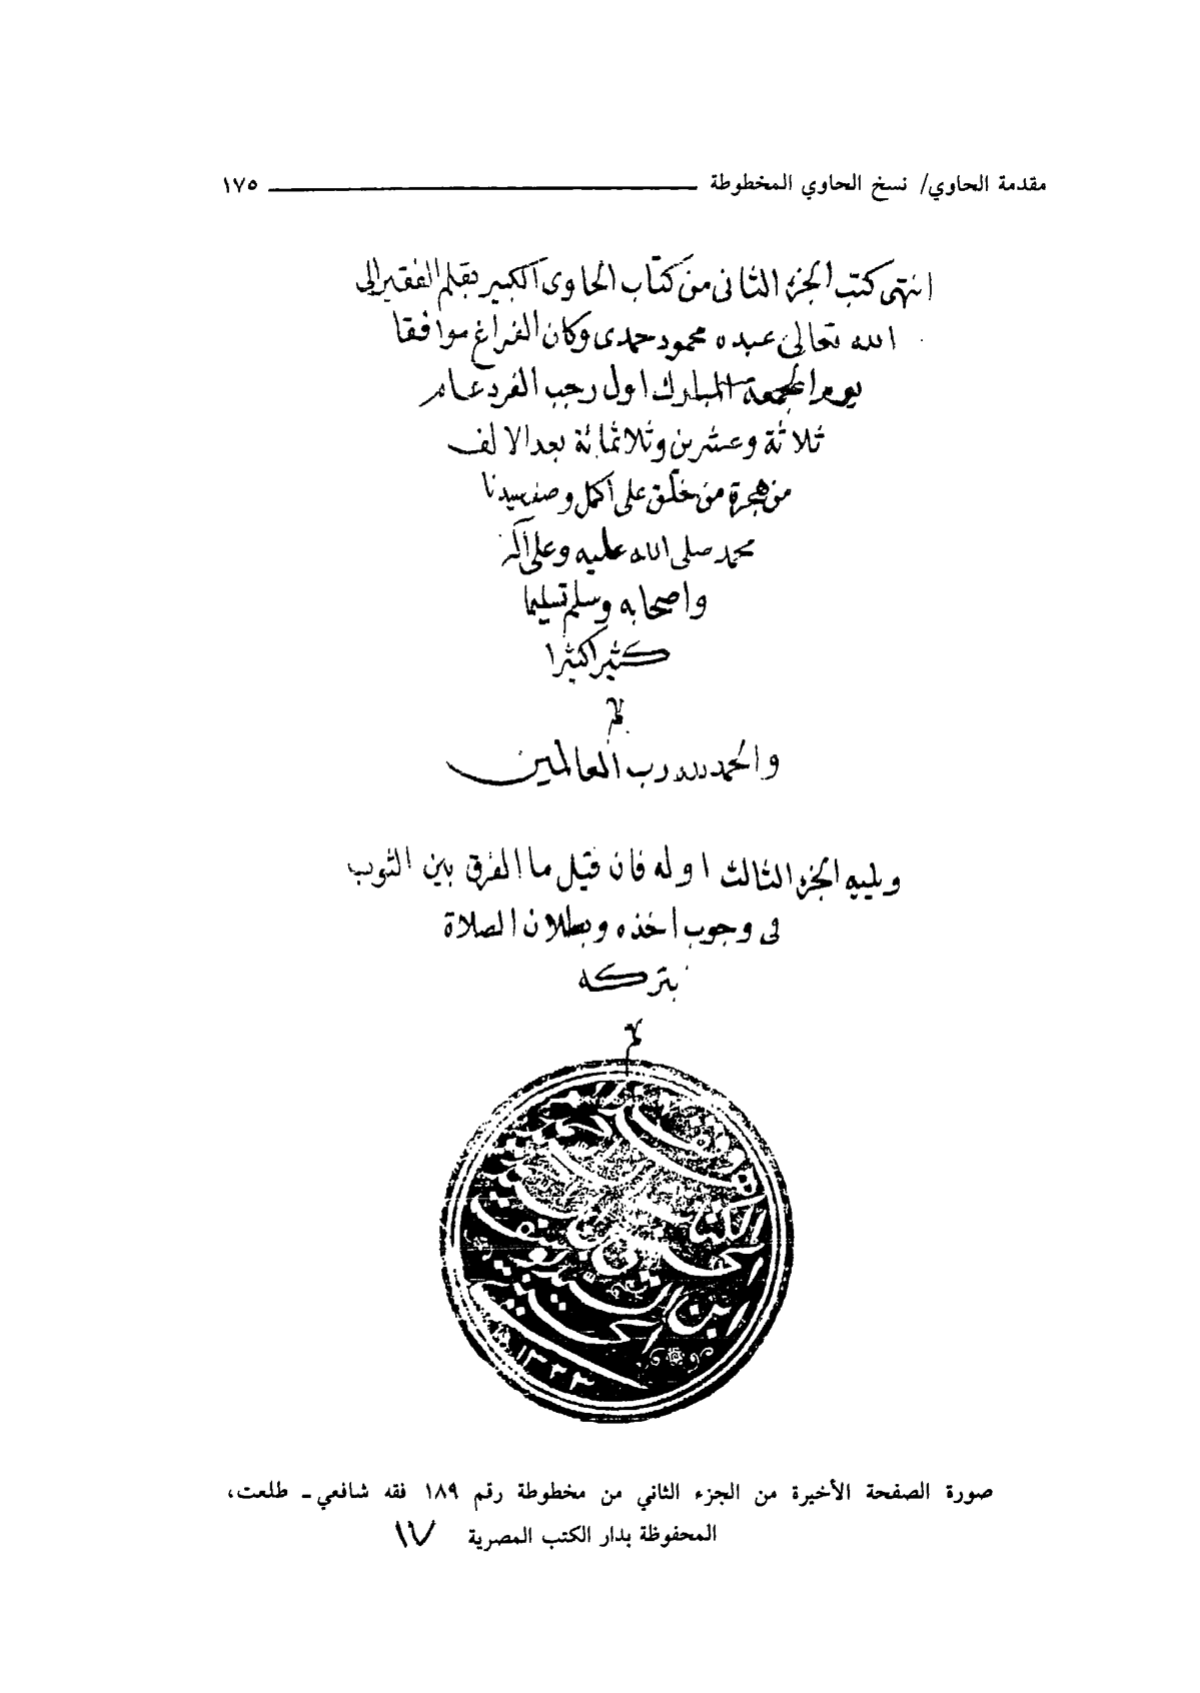 مقدمة الحاوي/ نسخ الحاوي المخطوطة ١٧٥
انتهى كتب الجزء الثانى من كتاب الحاوى الكبير بقلم الفقير الى
الله تعالى عبده محمود حمدى وكان الفراغ موافقا
يوم الجمعة المبارك اول رجب الفرد عام
ثلاثة وعشرين وثلاثمائة بعد الالف
من هجرة من خلق على اكمل وصف سيدنا
محمد صلى الله عليه وعلى آله
واصحابه وسلم تسليما
كثيرا كثيرا
م
والحمد لله رب العالمين
ويليه الجزء الثالث اوله فان قيل ما الفرق بين الثوب
فى وجوب اخذه وبطلان الصلاة
بتركه
م
الكتاب
١٣٣٣
صورة الصفحة الأخيرة من الجزء الثاني من مخطوطة رقم ١٨٩ فقه شافعي ـ طلعت،
المحفوظة بدار الكتب المصرية ١٧